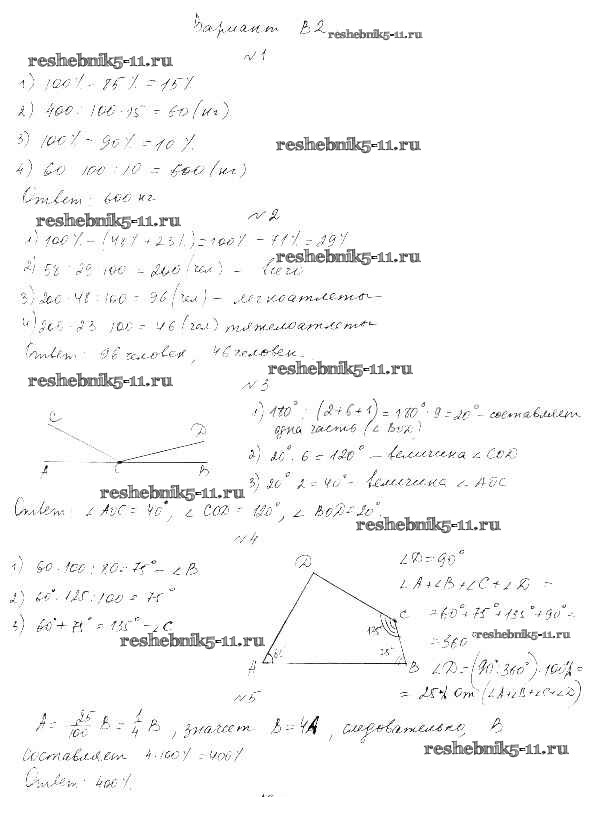 Вариант В2 reshebnik5-11.ru
№1
reshebnik5-11.ru
1) 100% - 85% = 15%
2) 400 : 100 · 15 = 60 (кг)
3) 100% - 90% = 10%
reshebnik5-11.ru
4) 60 · 100 : 10 = 600 (кг)
Ответ: 600 кг
reshebnik5-11.ru
№2
1) 100% - (48% + 23%) = 100% - 71% = 29%
reshebnik5-11.ru
2) 58 : 29 · 100 = 200 (чел) - всего
3) 200 · 48 : 100 = 96 (чел) - легкоатлеты
4) 200 · 23 : 100 = 46 (чел) тяжелоатлеты
Ответ: 96 человек, 46 человек.
reshebnik5-11.ru
reshebnik5-11.ru
№3
C
D
A C B
1) 180° : (2+6+1) = 180° : 9 = 20° - составляет
одна часть (∠BOD)
2) 20° · 6 = 120° - величина ∠COD
3) 20° · 2 = 40° - величина ∠AOC
reshebnik5-11.ru
Ответ: ∠AOC = 40°, ∠COD = 120°, ∠BOD = 20°.
reshebnik5-11.ru
№4
1) 60 · 100 : 80 = 75° - ∠B
2) 60° · 125 : 100 = 75°
3) 60° + 75° = 135° - ∠C
reshebnik5-11.ru
D
C
A
B
∠D = 90°
∠A + ∠B + ∠C + ∠D =
= 60° + 75° + 135° + 90° =
= 360°
reshebnik5-11.ru
∠D = (90° : 360°) · 100% =
= 25% от (∠A+∠B+∠C+∠D)
№5
A = 25/100 B = 1/4 B, значит B = 4A, следовательно, B
составляет 4 · 100% = 400%
reshebnik5-11.ru
Ответ: 400%.